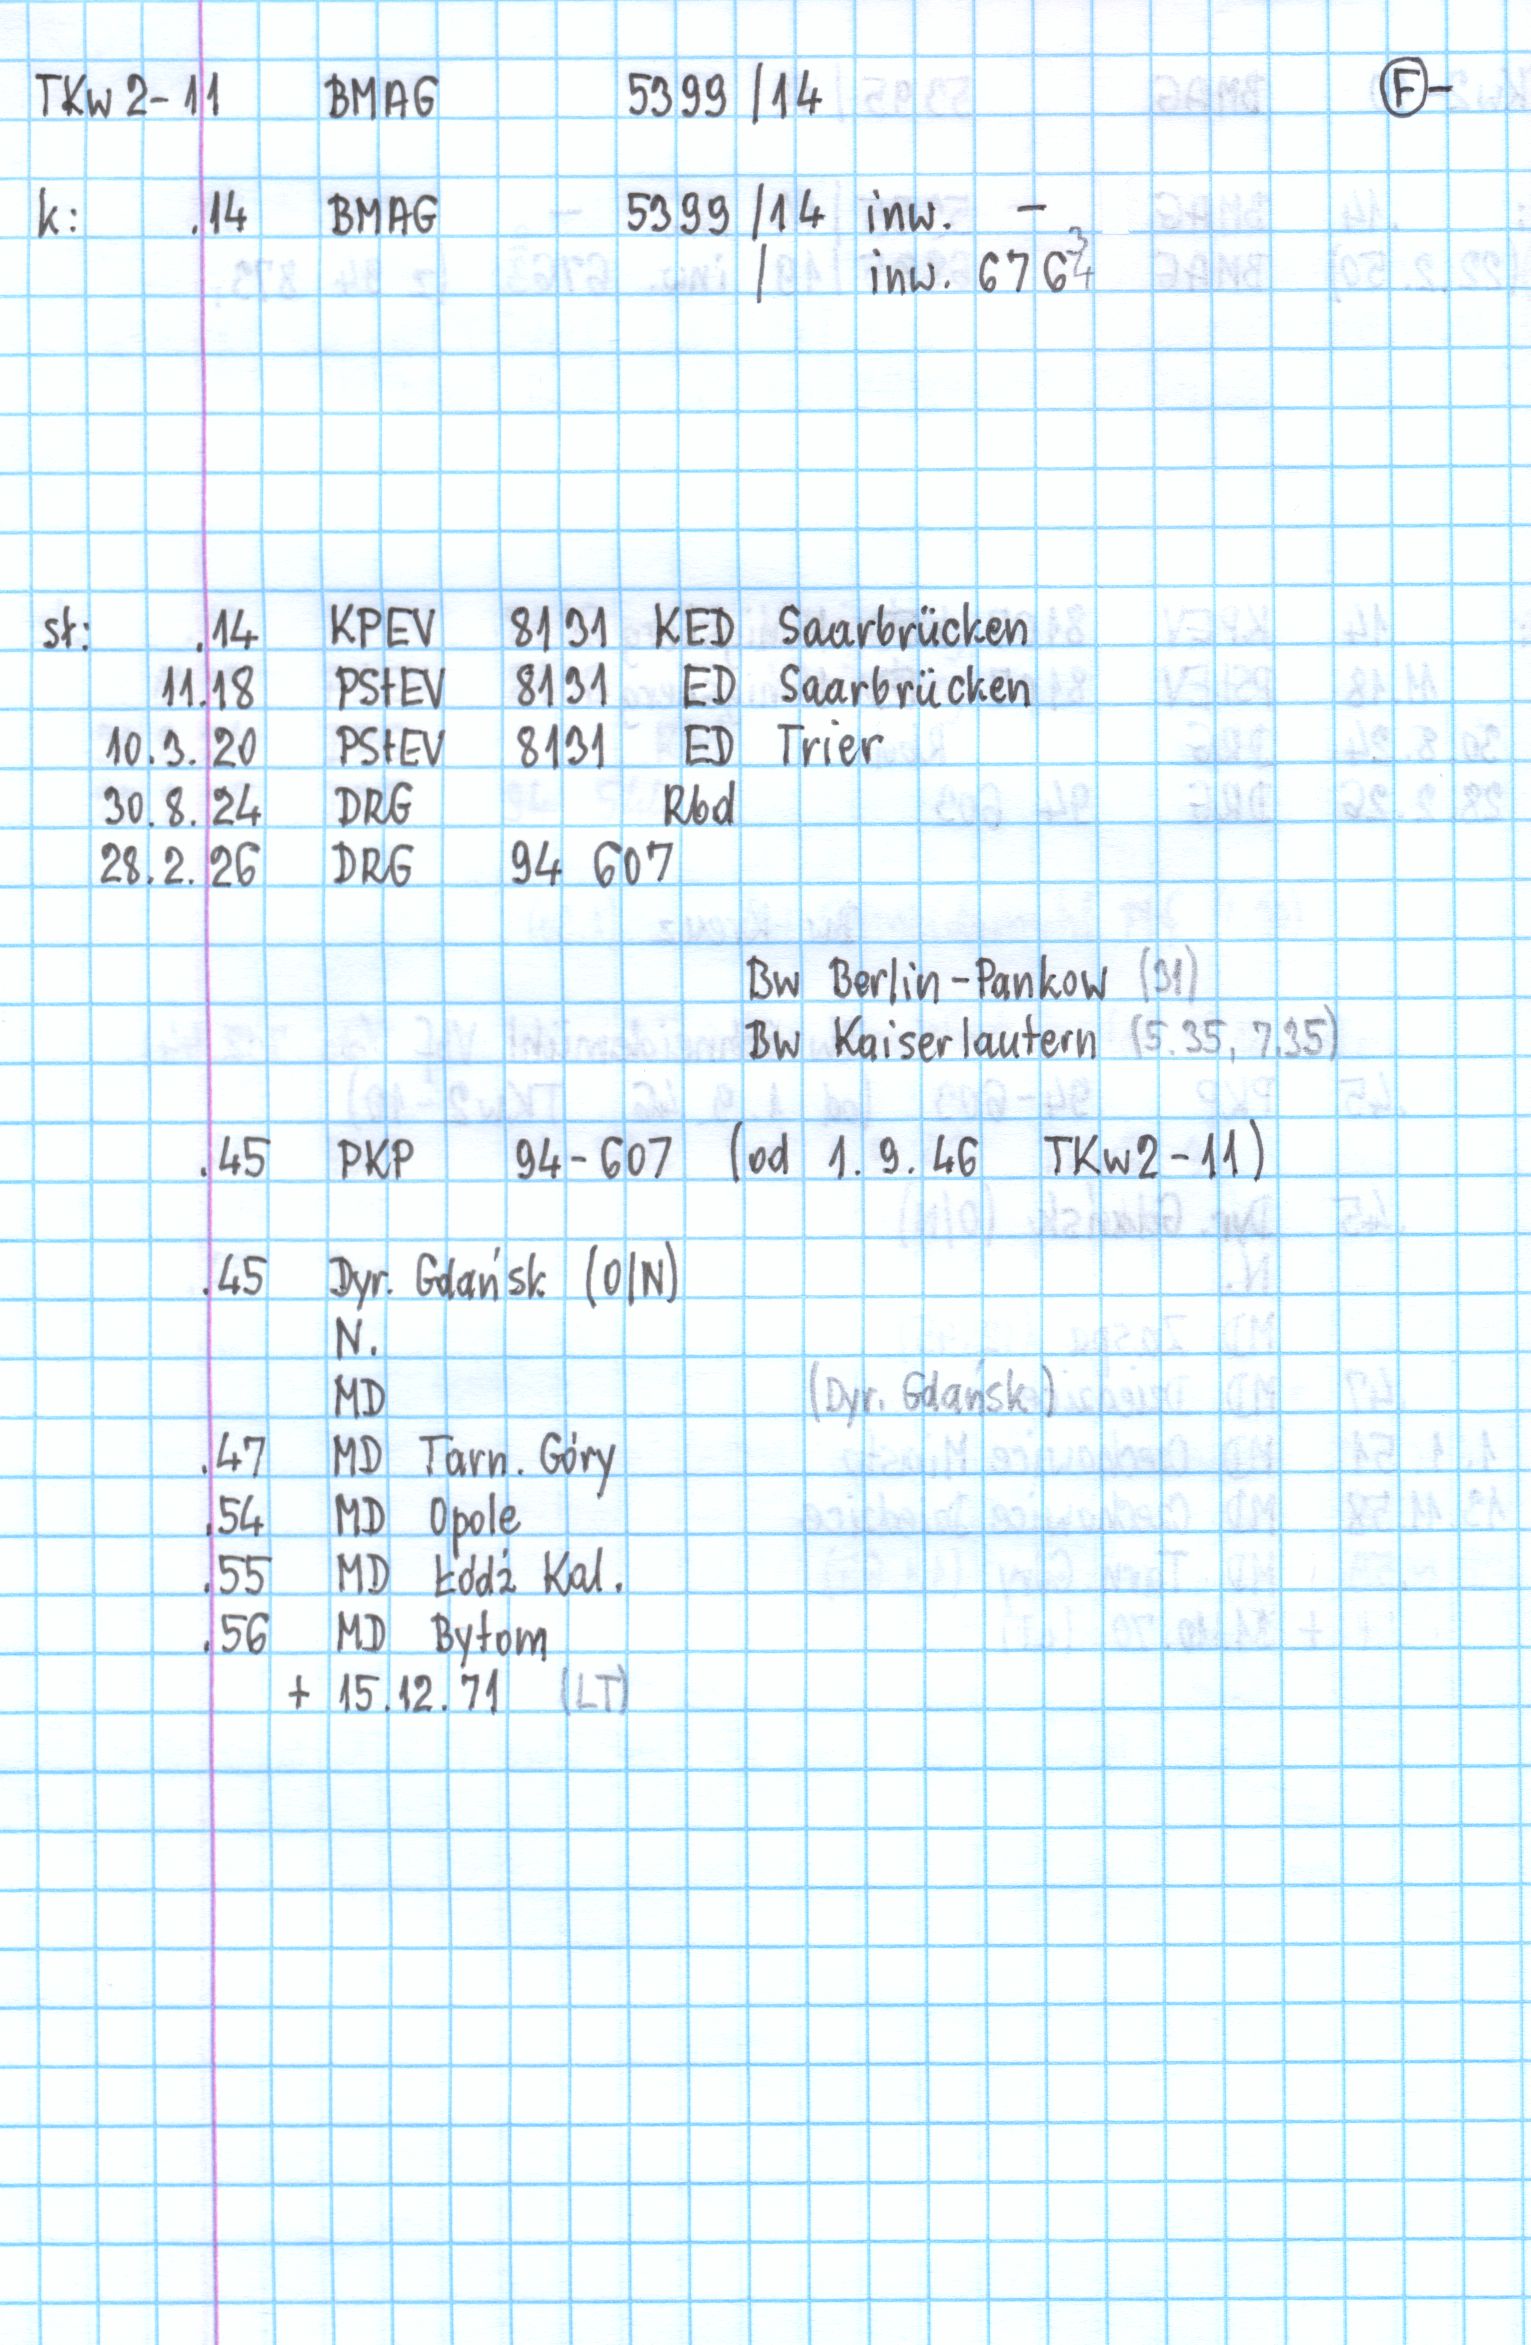 TKw 2-11 BMAG 5399/14 F-
k: .14 BMAG 5399/14 inw. -
/ inw. 6764 3
st: .14 KPEV 8131 KED Saarbrücken
11.18 PStEV 8131 ED Saarbrücken
10.3.20 PStEV 8131 ED Trier
30.8.24 DRG Rbd
28.2.26 DRG 94 607
Bw Berlin-Pankow (31)
Bw Kaiserlautern (5.35, 7.35)
.45 PKP 94-607 (od 1.9.46 TKw2-11)
.45 Dyr. Gdańsk (O/N)
N.
MD (Dyr. Gdańsk)
.47 MD Tarn. Góry
.54 MD Opole
.55 MD Łódź Kal.
.56 MD Bytom
+ 15.12.71 (LT)